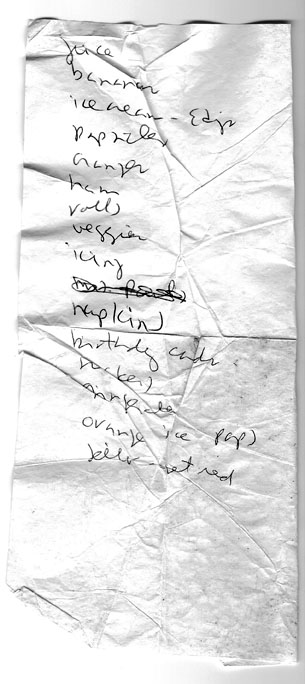 juice
bananas
ice cream - Edys
popsicles
oranges
ham
rolls
veggies
icing
napkins
birthday cards
orange ice pops
Jello - get red